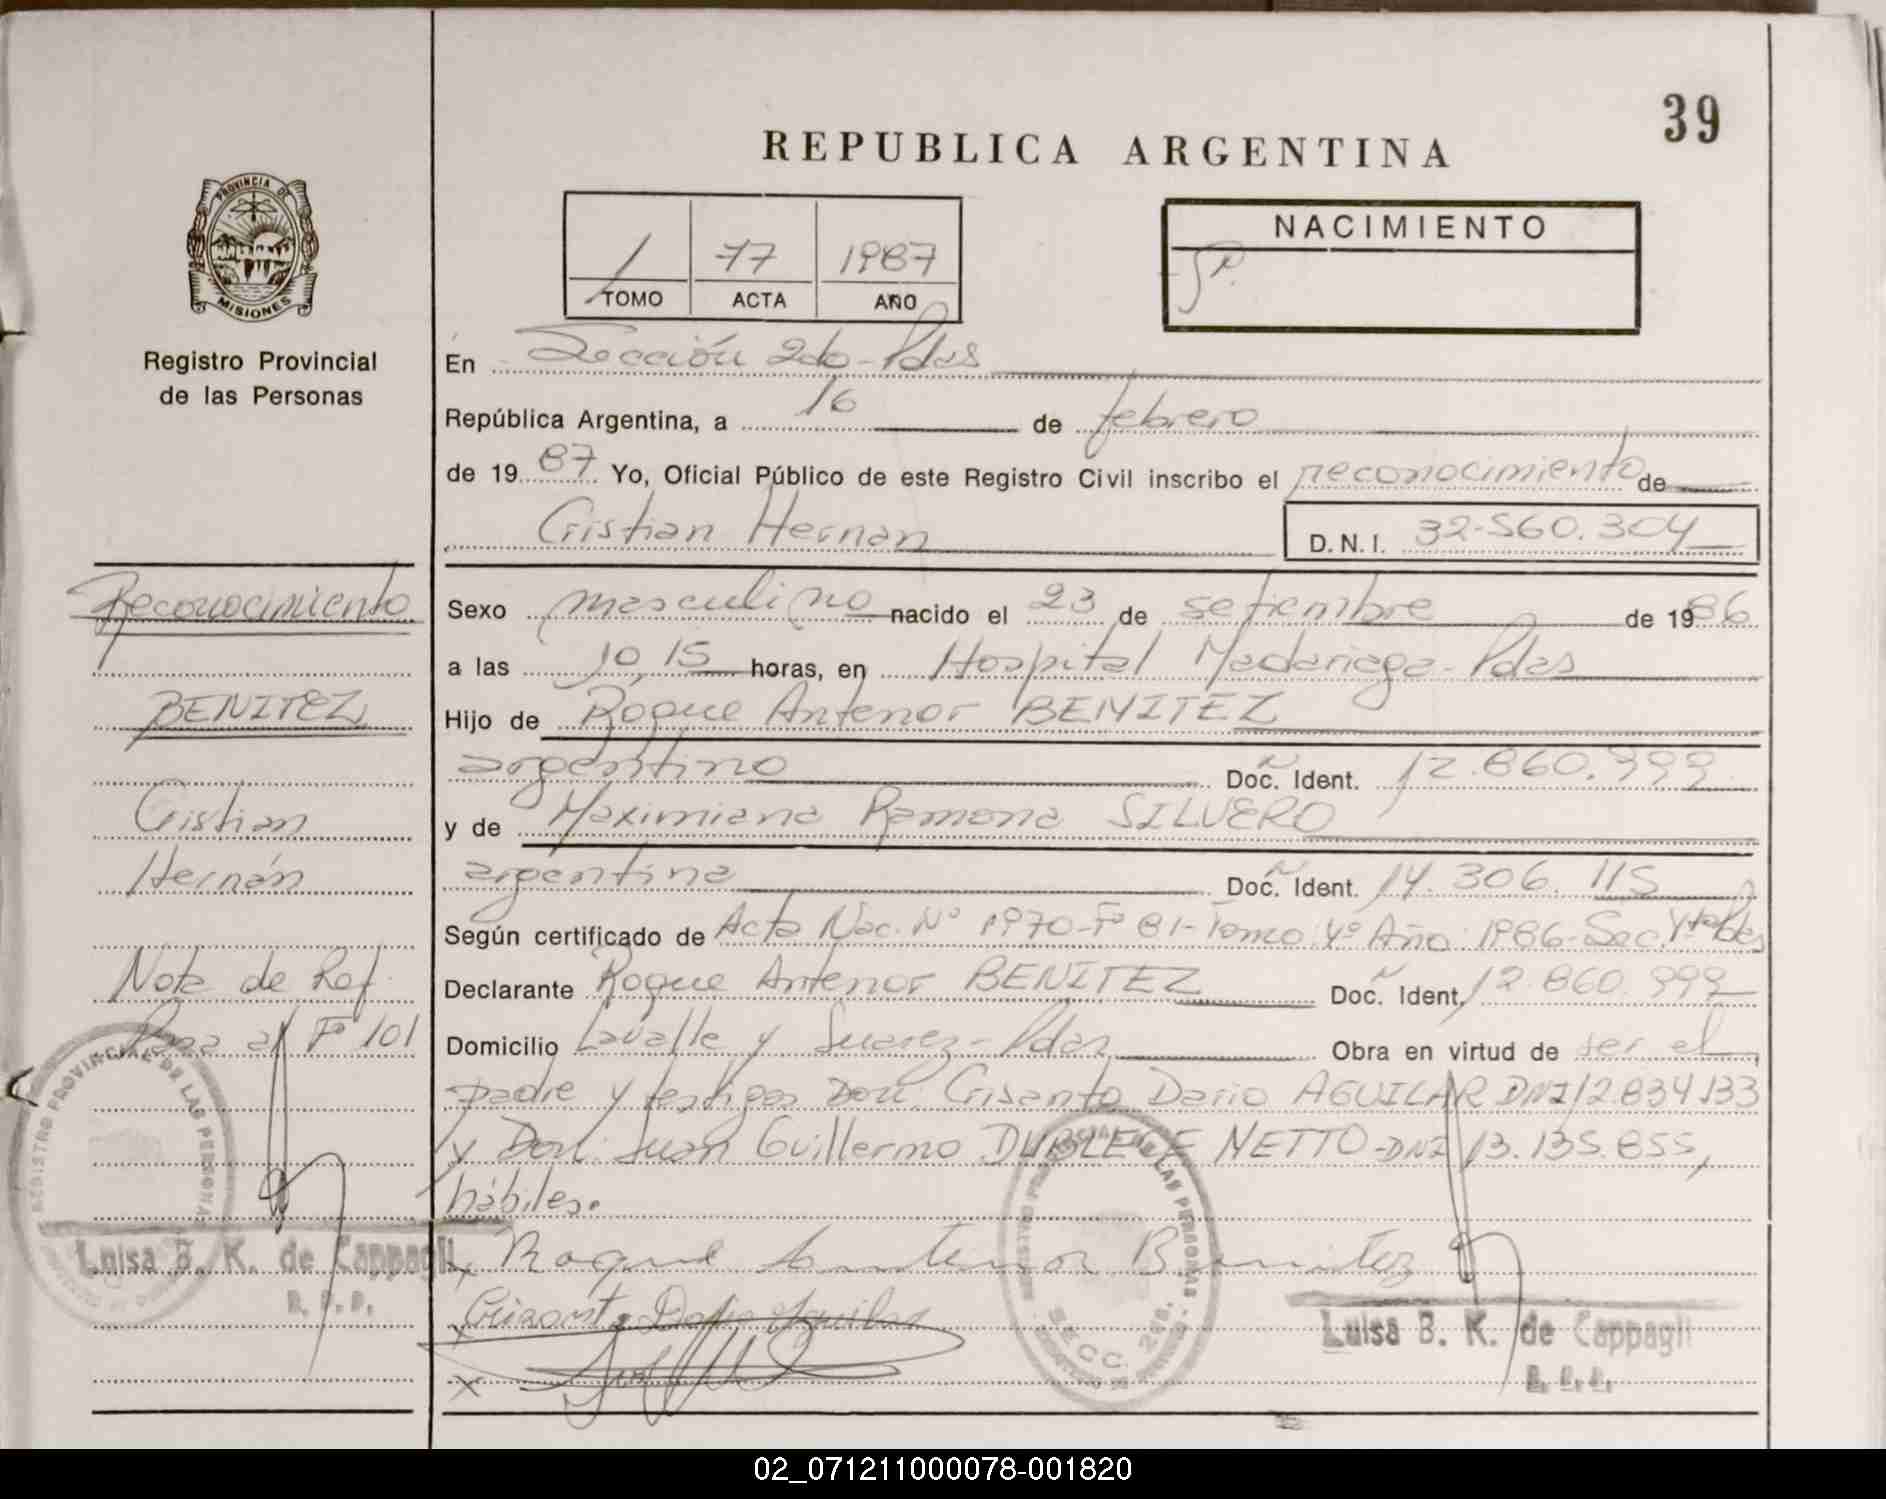 39
REPUBLICA ARGENTINA
PROVINCIA DE
MISIONES
Registro Provincial
de las Personas
1 77 1987
TOMO ACTA AÑO
NACIMIENTO
En Sección 2do - Pdas
República Argentina, a 16 de febrero
de 1987 Yo, Oficial Público de este Registro Civil inscribo el reconocimiento de
Cristian Hernan D.N.I. 32.560.304
Sexo masculino nacido el 23 de setiembre de 1986
a las 10,15 horas, en Hospital Madariaga - Pdas
Hijo de Roque Antenor BENITEZ
argentino Doc. Ident. 12.860.999
y de Maximiana Ramona SILVERO
argentina Doc. Ident. 14.306.115
Según certificado de Acta Nac. Nº 1970-Fº 81-Tomo 4º Año 1986-Sec. 4ta Pdas
Declarante Roque Antenor BENITEZ Doc. Ident. 12.860.999
Domicilio Lavalle y Suarez - Pdas Obra en virtud de ser el
padre y testigos Don Crisanto Dario AGUILAR DNI 12.834.133
y Don Juan Guillermo NETTO-DNI 13.135.855,
hábiles.
x Roque Antenor Benitez
x Crisanto Dario Aguilar
x
Reconocimiento
BENITEZ
Cristian
Hernán
Nota de Ref.
Pasa al Fº 101
REGISTRO PROVINCIAL DE LAS PERSONAS
Luisa B. K. de Cappagli
SECC. 2da.
Luisa B. K. de Cappagli
02_071211000078-001820